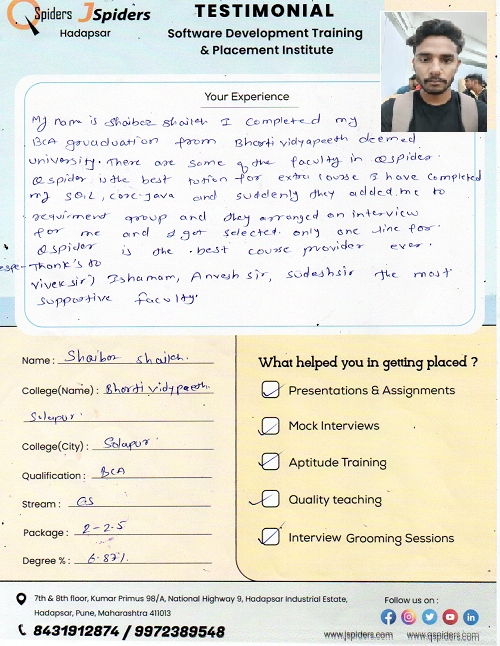 QSpiders JSpiders
Hadapsar
TESTIMONIAL
Software Development Training
& Placement Institute
Your Experience
My name is Shaiboz Shaikh I completed my
BCA gruaduation from Bharti vidyapeeth deemed
university. There are some of the faculty in Qspider.
Qspider is the best tution for extra course I have completed
my SQL, core-java and suddenly they added me to
requirment group and they arranged an interview
for me and I got selected. only one line for
Qspider is the best course provider ever.
espe- Thank's to
vivek sir) Ishamam, Anvesh sir, sudesh sir the most
supportive faculty.
Name : Shaiboz Shaikh.
College(Name) : Bharti vidyapeeth
Solapur.
College(City) : Solapur.
Qualification : BCA
Stream : CS
Package : 2-2.5
Degree % : 6.87%
What helped you in getting placed ?
Presentations & Assignments
Mock Interviews
Aptitude Training
Quality teaching
Interview Grooming Sessions
7th & 8th floor, Kumar Primus 98/A, National Highway 9, Hadapsar Industrial Estate,
Hadapsar, Pune, Maharashtra 411013
8431912874 / 9972389548
Follow us on :
www.jspiders.com www.qspiders.com